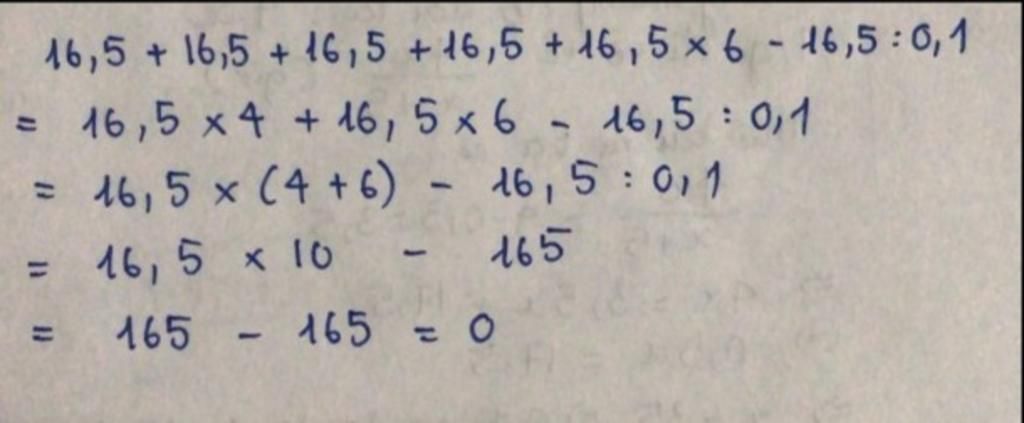 16,5 + 16,5 + 16,5 + 16,5 + 16,5 × 6 - 16,5 : 0,1
= 16,5 × 4 + 16,5 × 6 - 16,5 : 0,1
= 16,5 × (4 + 6) - 16,5 : 0,1
= 16,5 × 10 - 165
= 165 - 165 = 0